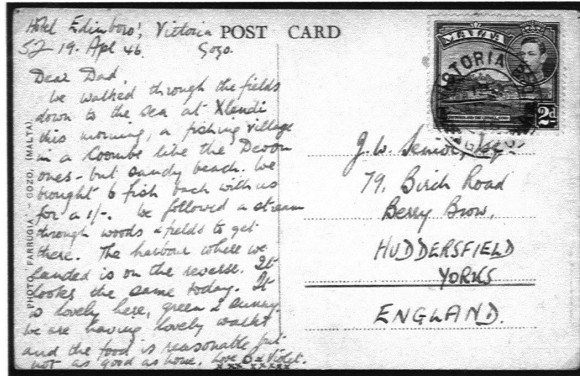 Hotel Edinboro', Victoria
POST CARD
52 19. Apl 46. Gozo.
Dear Dad,
We walked through the fields
down to the sea at Xlendi
this morning, a fishing village
in a Coombe like the Devon
ones - but sandy beach. We
brought 6 fish back with us
for a 1/-. We followed a stream
through woods & fields to get
there. The harbour where we
landed is on the reverse. It
looks the same today. It
is lovely here, green & sunny.
We are having lovely walks
and the food is reasonable but
not as good as home. Love & Violet.
xxx xxxxx
PHOTO "FARRUGIA" GOZO, (MALTA)
MALTA
2d
VICTORIA
J. W. Senior, Esq.
79, Birch Road
Berry Brow,
HUDDERSFIELD
YORKS
ENGLAND.